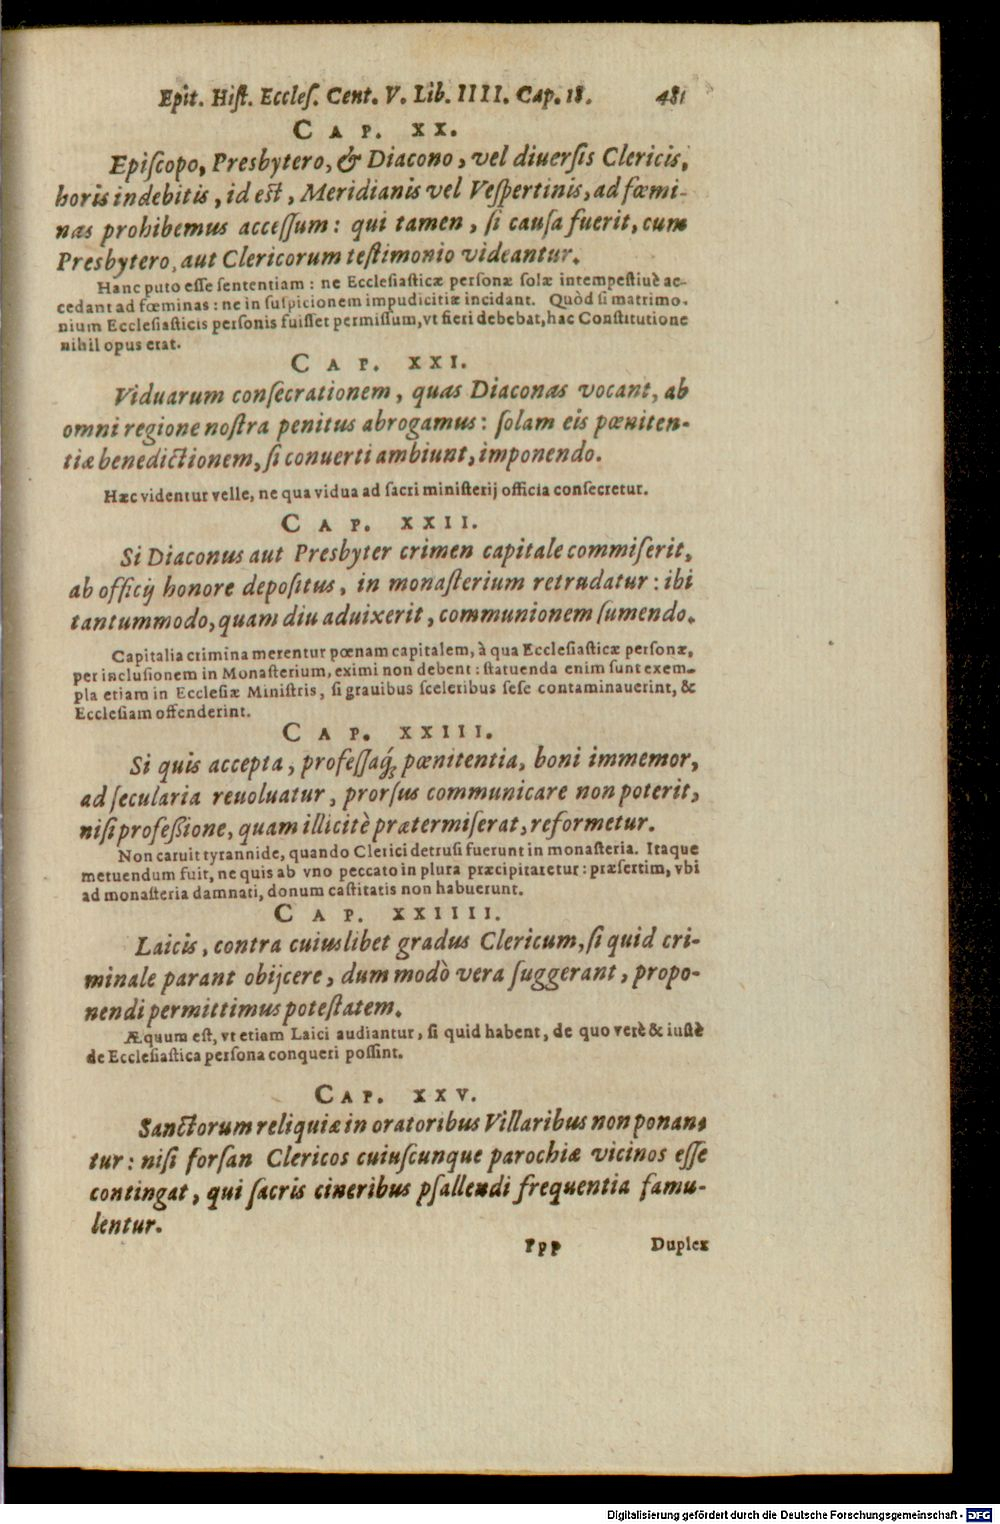 Epit. Hiſt. Eccleſ. Cent. V. Lib. IIII. Cap. 18. 481
CAP. XX.
Epiſcopo, Presbytero, & Diacono, vel diuerſis Clericis,
horis indebitis, id est, Meridianis vel Veſpertinis, ad fœmi-
nas prohibemus acceſſum: qui tamen, ſi cauſa fuerit, cum
Presbytero, aut Clericorum teſtimonio videantur.
Hanc puto eſſe ſententiam: ne Eccleſiaſticæ perſonæ ſolæ intempeſtiuè ac-
cedant ad fœminas: ne in ſuſpicionem impudicitiæ incidant. Quòd ſi matrimo-
nium Eccleſiaſticis perſonis fuiſſet permiſſum, vt fieri debebat, hac Conſtitutione
nihil opus erat.
CAP. XXI.
Viduarum conſecrationem, quas Diaconas vocant, ab
omni regione noſtra penitus abrogamus: ſolam eis pœniten-
tiæ benedictionem, ſi conuerti ambiunt, imponendo.
Hæc videntur velle, ne qua vidua ad ſacri miniſterij officia conſecretur.
CAP. XXII.
Si Diaconus aut Presbyter crimen capitale commiſerit,
ab officij honore depoſitus, in monaſterium retrudatur: ibi
tantummodo, quam diu aduixerit, communionem ſumendo.
Capitalia crimina merentur pœnam capitalem, à qua Eccleſiaſticæ perſonæ,
per incluſionem in Monaſterium, eximi non debent: ſtatuenda enim ſunt exem-
pla etiam in Eccleſiæ Miniſtris, ſi grauibus ſceleribus ſeſe contaminauerint, &
Eccleſiam offenderint.
CAP. XXIII.
Si quis accepta, profeſſaq́; pœnitentia, boni immemor,
ad ſecularia reuoluatur, prorſus communicare non poterit,
niſi profeſsione, quam illicitè prætermiſerat, reformetur.
Non caruit tyrannide, quando Clerici detruſi fuerunt in monaſteria. Itaque
metuendum fuit, ne quis ab vno peccato in plura præcipitaretur: præſertim, vbi
ad monaſteria damnati, donum caſtitatis non habuerunt.
CAP. XXIIII.
Laicis, contra cuiuslibet gradus Clericum, ſi quid cri-
minale parant obijcere, dum modò vera ſuggerant, propo-
nendi permittimus poteſtatem.
Æquum eſt, vt etiam Laici audiantur, ſi quid habent, de quo verè & iuſtè
de Eccleſiaſtica perſona conqueri poſſint.
CAP. XXV.
Sanctorum reliquiæ in oratoribus Villaribus non ponan-
tur: niſi forſan Clericos cuiuſcunque parochiæ vicinos eſſe
contingat, qui ſacris cineribus pſallendi frequentia famu-
lentur.
Ppp Duplex
Digitalisierung gefördert durch die Deutsche Forschungsgemeinschaft - DFG